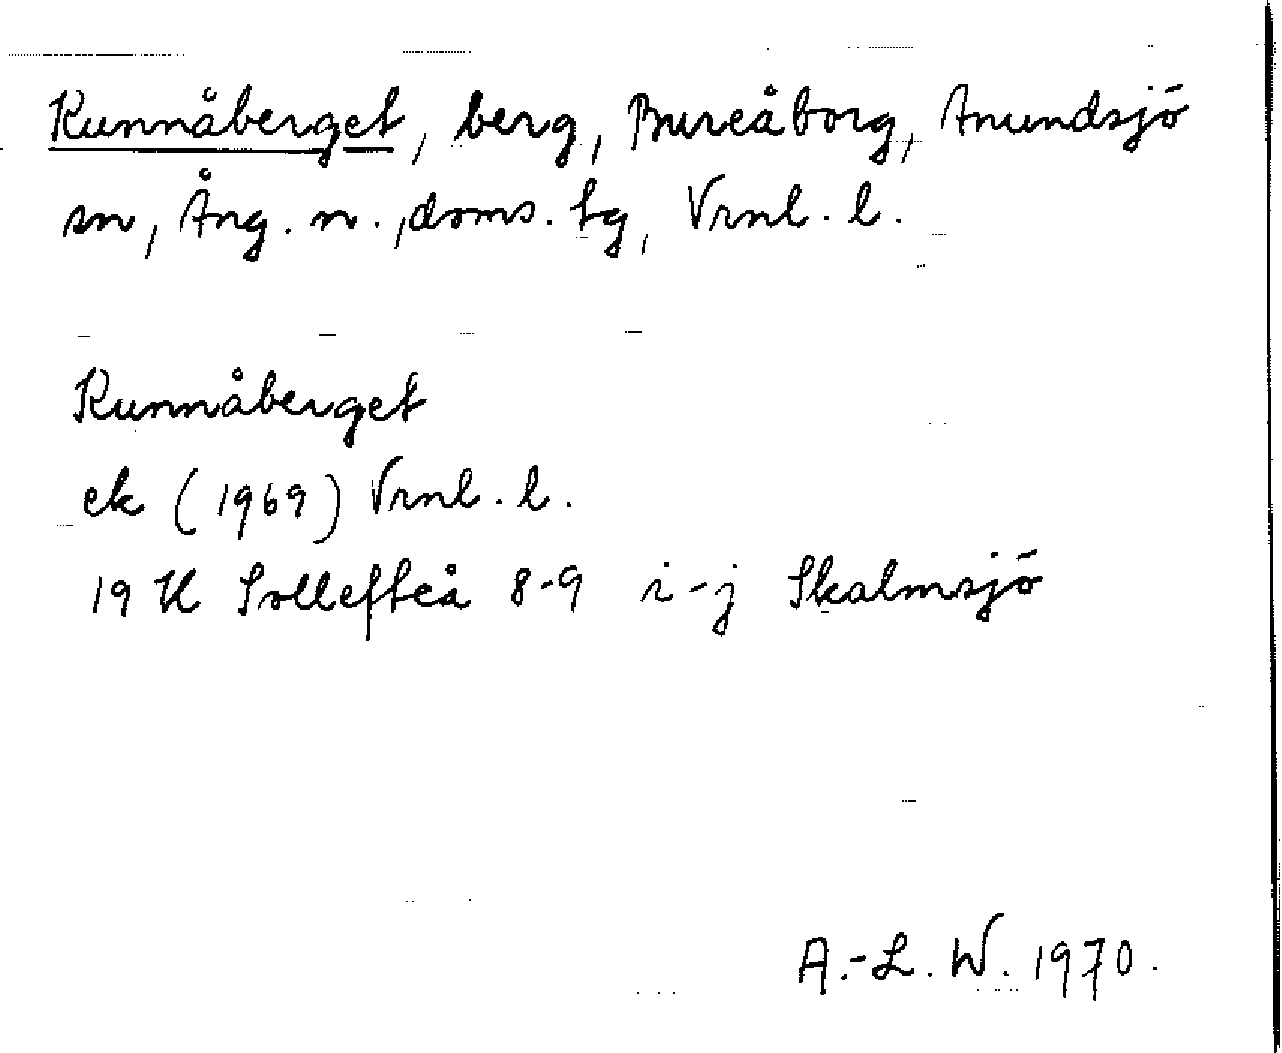 Kunnåberget, berg, Bureåborg, Anundsjö
sn, Ång. n., doms. tg, Vrnl. l.
Kunnåberget
ek (1969) Vrnl. l.
19 H Sollefteå 8-9 i-j Skalmsjö
A.-L. W. 1970.